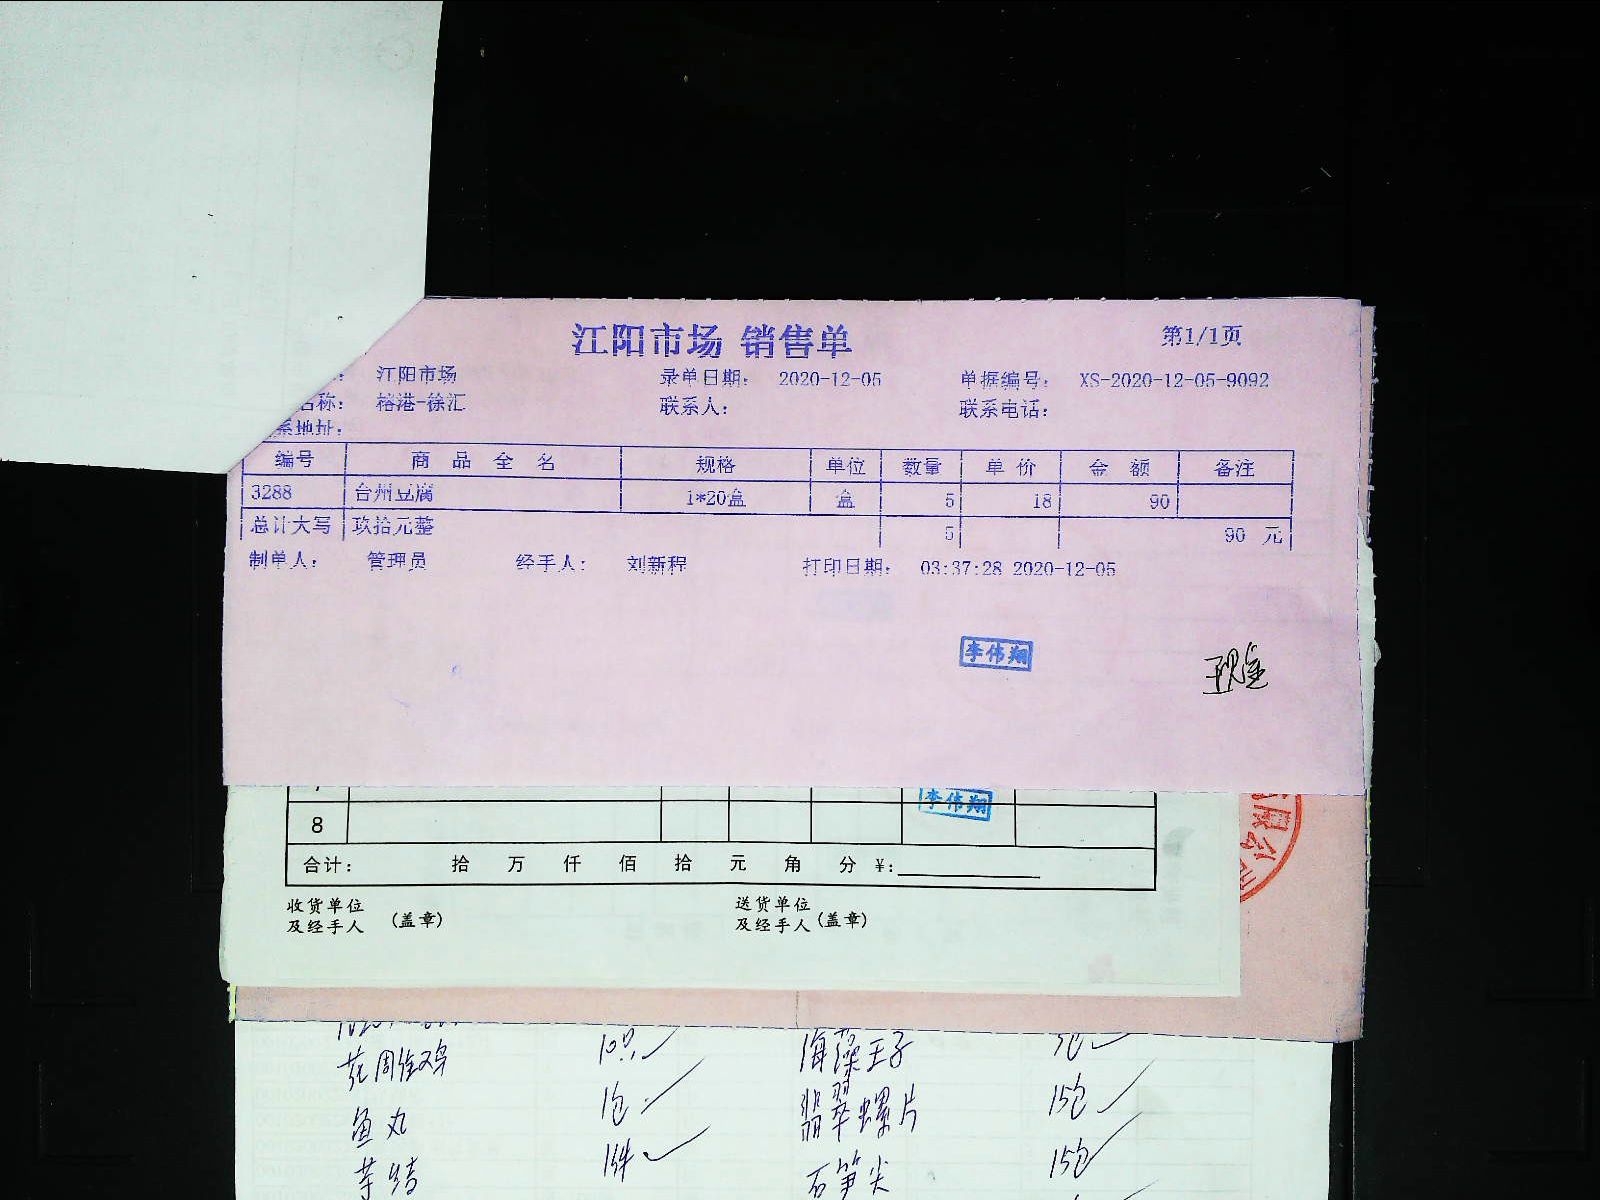 江阳市场 销售单
第1/1页
江阳市场 录单日期： 2020-12-05 单据编号： XS-2020-12-05-9092
名称： 榕港-徐汇 联系人： 联系电话：
系地址：
编号 商 品 全 名 规格 单位 数量 单 价 金 额 备注
3288 台州豆腐 1*20盒 盒 5 18 90
总计大写 玖拾元整 5 90 元
制单人： 管理员 经手人： 刘新程 打印日期： 03:37:28 2020-12-05
李伟翔
现金
李伟翔
8
限公司
合计： 拾 万 仟 佰 拾 元 角 分 ¥:
收货单位
及经手人 (盖章)
送货单位
及经手人 (盖章)
10只 海藻王子
1包 翡翠螺片 15包
鱼丸
1件 石笋尖 15包